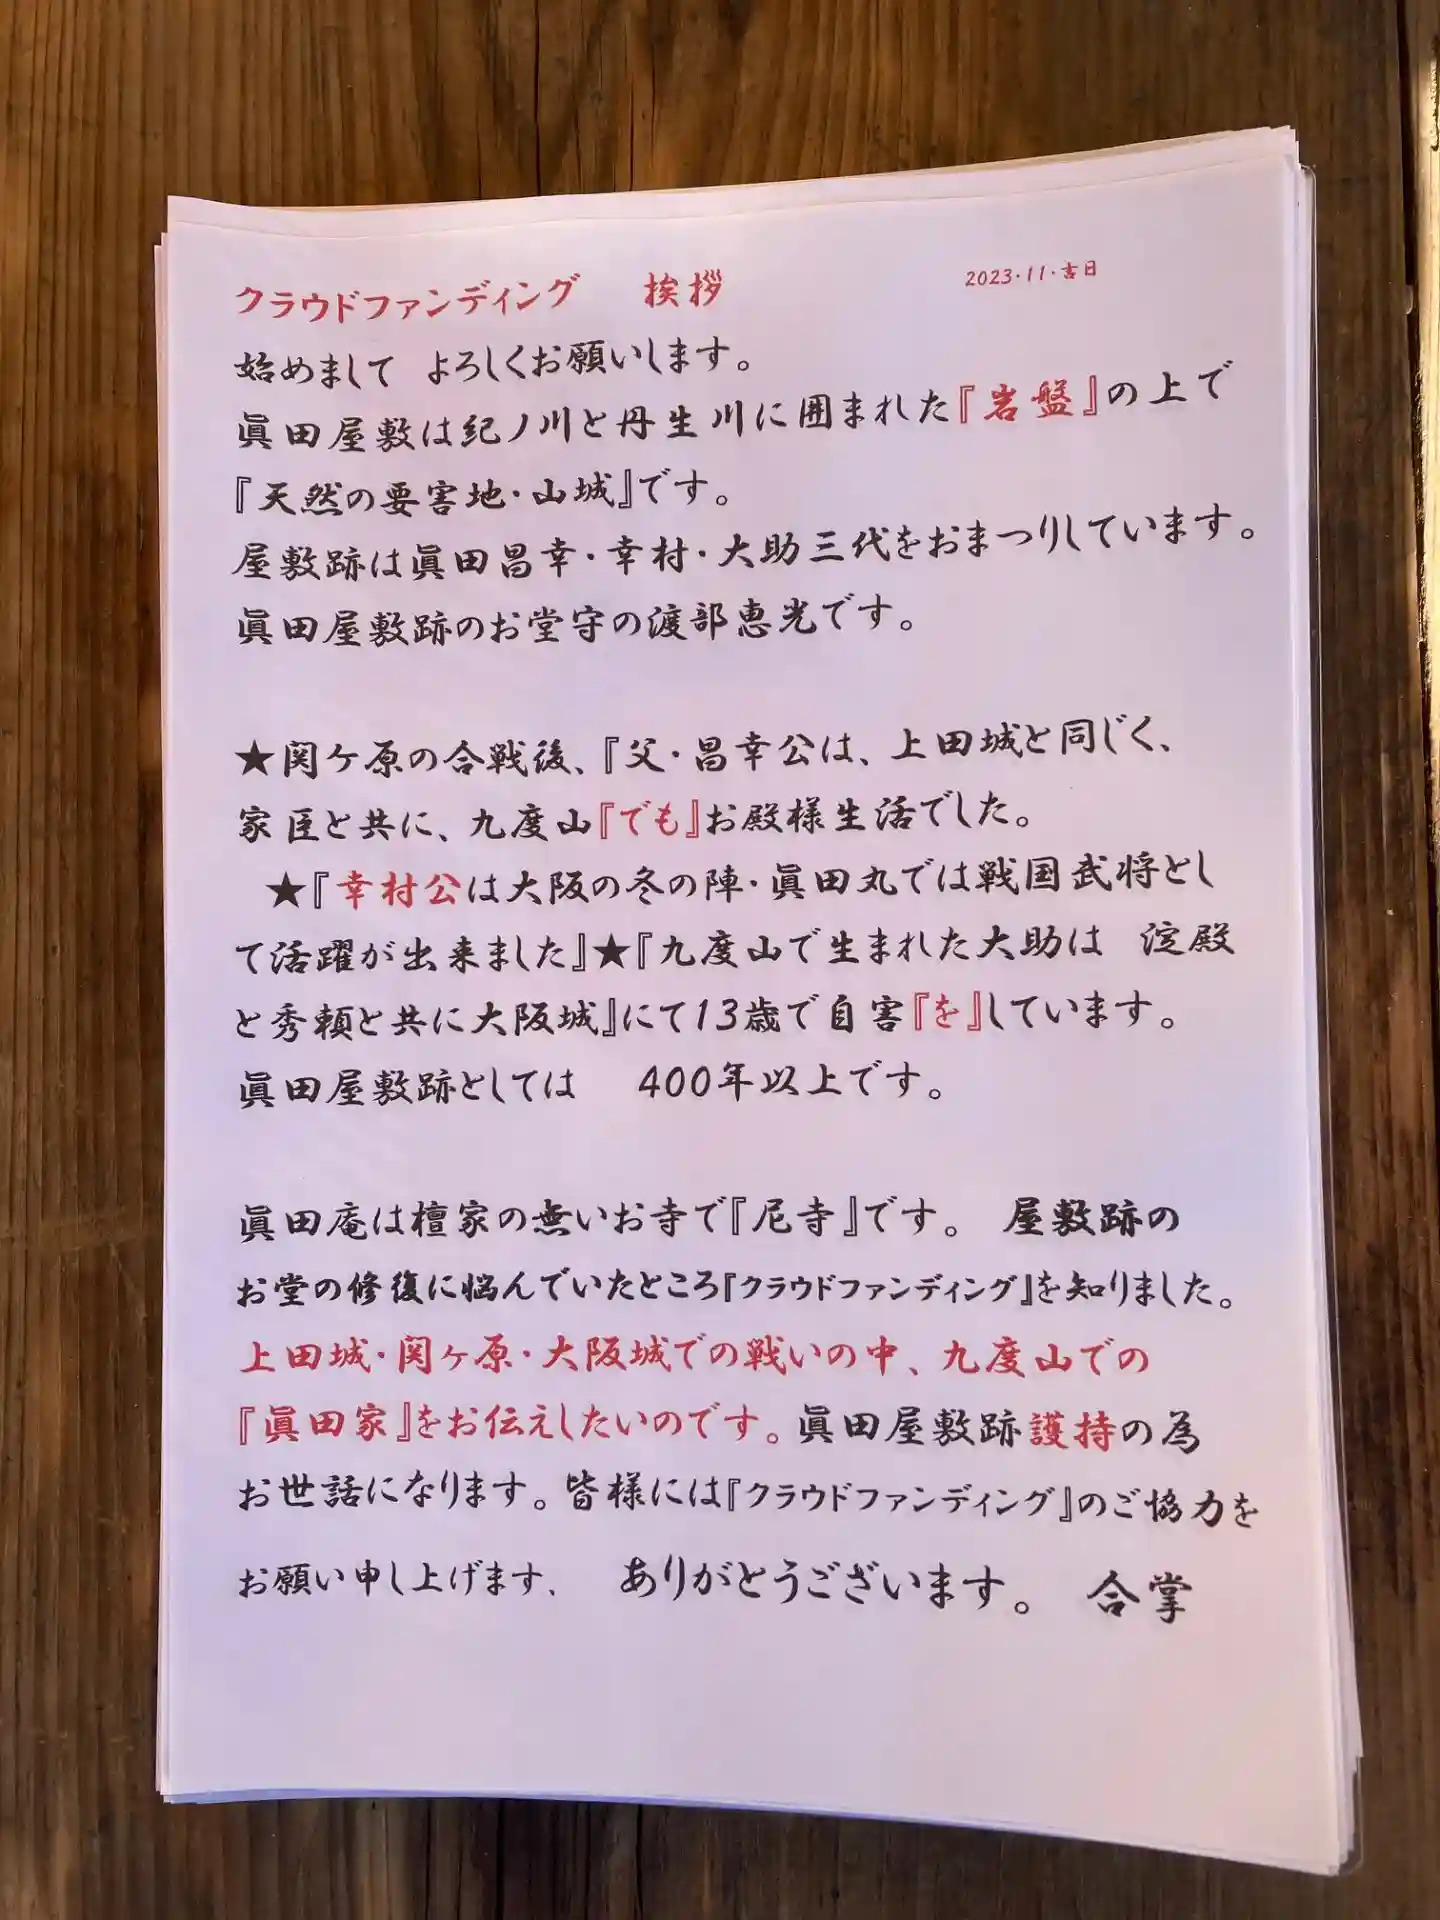 クラウドファンディング　挨拶　2023・11・吉日
始めまして　よろしくお願いします。
眞田屋敷は紀ノ川と丹生川に囲まれた『岩盤』の上で
『天然の要害地・山城』です。
屋敷跡は眞田昌幸・幸村・大助三代をおまつりしています。
眞田屋敷跡のお堂守の渡部恵光です。
★関ケ原の合戦後、『父・昌幸公は、上田城と同じく、
家臣と共に、九度山『でも』お殿様生活でした。
★『幸村公は大阪の冬の陣・眞田丸では戦国武将とし
て活躍が出来ました』★『九度山で生まれた大助は　淀殿
と秀頼と共に大阪城』にて13歳で自害『を』しています。
眞田屋敷跡としては　400年以上です。
眞田庵は檀家の無いお寺で『尼寺』です。　屋敷跡の
お堂の修復に悩んでいたところ『クラウドファンディング』を知りました。
上田城・関ヶ原・大阪城での戦いの中、九度山での
『眞田家』をお伝えしたいのです。眞田屋敷跡護持の為
お世話になります。皆様には『クラウドファンディング』のご協力を
お願い申し上げます、　ありがとうございます。　合掌